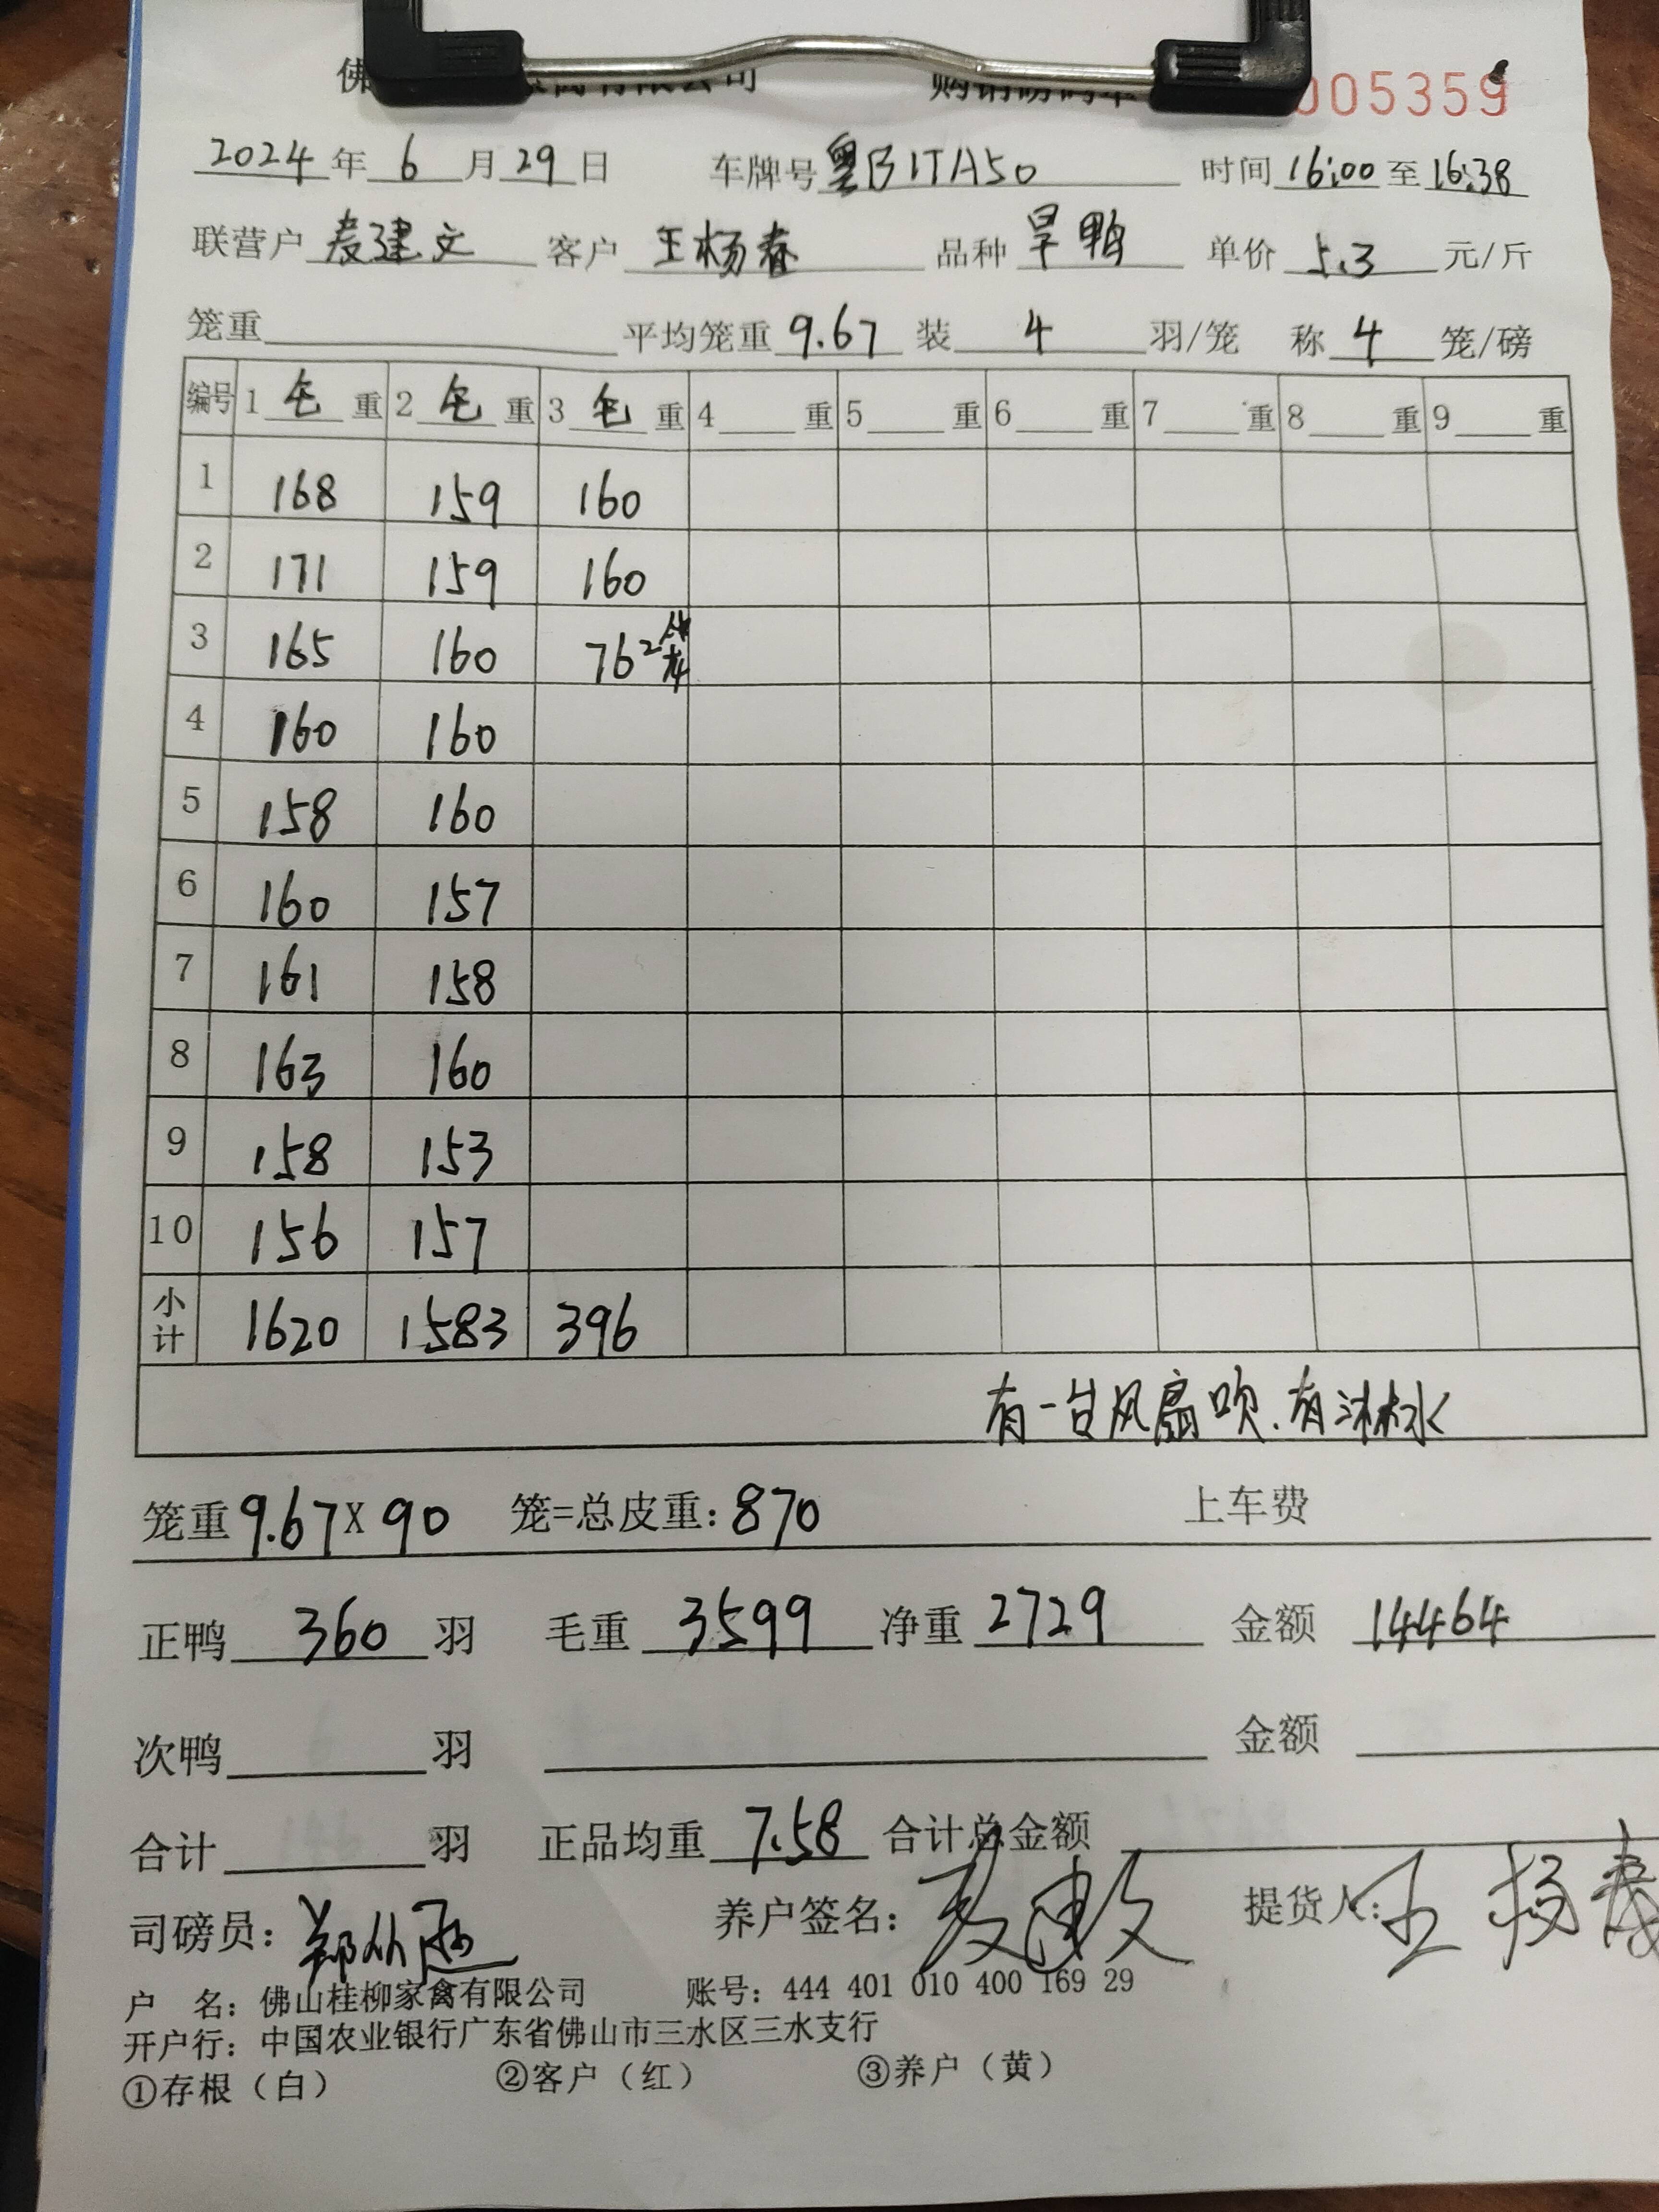 005359
2024年6月29日 车牌号粤B1TA50 时间16:00至16:38
联营户麦建文 客户王杨春 品种旱鸭 单价5.3元/斤
笼重 平均笼重9.67 装4羽/笼 称4笼/磅
编号 1毛重 2毛重 3毛重 4重 5重 6重 7重 8重 9重
1 168 159 160
2 171 159 160
3 165 160 76 2笼
4 160 160
5 158 160
6 160 157
7 161 158
8 163 160
9 158 153
10 156 157
小计 1620 1583 396
有一台风扇吹.有淋水
笼重9.67X90 笼=总皮重:870 上车费
正鸭360羽 毛重3599 净重2729 金额14464
次鸭 羽 金额
合计 羽 正品均重7.58 合计总金额
司磅员: 养户签名:麦建文 提货人:王杨春
户 名: 佛山桂柳家禽有限公司 账号: 444 401 010 400 169 29
开户行: 中国农业银行广东省佛山市三水区三水支行
①存根（白） ②客户（红） ③养户（黄）